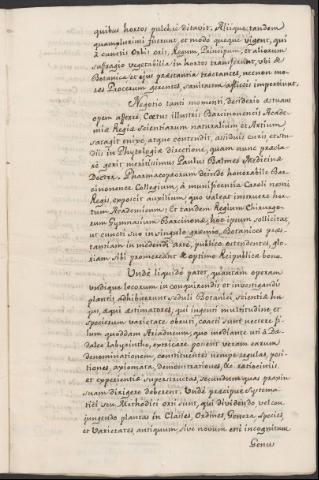 quibus hortos pulchrè ditavit. Aliique tandem
quamplurimi fuerunt, et modo quoque vigent, qui
à cunctis Orbis oris, Regum, Principum, et aliorum
sufragio vegetabilia in hortos transferunt, ubi de
Botanica et ejus præstantia tractantes, necnon mo-
res Procerum gerentes, sanitatem afflictis impertiunt.
Negotio tanti momenti, desiderio æstuans
opem afferre, Cœtus illustris Barcinonensis Acade-
mia Regia Scientiarum naturalium et Artium
satagit nixo, atque contendit, assiduis curis et stu-
diis in Phytologia Directione, quam nunc præcla-
rè gerit meritissimus Paulus Balmes Medicinæ
Doctor. Pharmacopæorum deinde honorabile Bar-
cinonense Collegium, à munificentia Caroli noni
Regis, exposcit auxilium, quo valeat instruere hor-
tum Academicum; Et tandem Regium Chirurgo-
rum Gymnasium Barcinonæ, hoc ipsum sollicitat,
ut cuncti suo in singulo gremio, Botanices præs-
tantiam in medendi arte, publico ostendentes, glo-
riam sibi promereant & optimo Reipublicæ bono.
Undè liquido patet, quantam operam
undique locorum in conquirendis et investigandis
plantis adhibuerunt seduli Botanici, scientiæ hu-
jus, æqui æstimatores, qui ingenti multitudine et
specierum varietate obruti, coacti sunt nectere fi-
lum quoddam Ariadneum, quo mediante uti à De-
daleo labyrintho, extricare possent veram earum
denominationem, constituentes nempe regulas, posi-
tiones, axiomata, demonstrationes, &c ratiociniis
et experientiæ superstructas, secundum quas praxin
suam dirigere deberent. Undè præcipuè Systema-
tici seu Methodici orti sunt, qui dividendo vel con-
jungendo plantas in Classes, Ordines, Genera, Species,
et Varietates antiquum sive novum erit incognitum
Genus